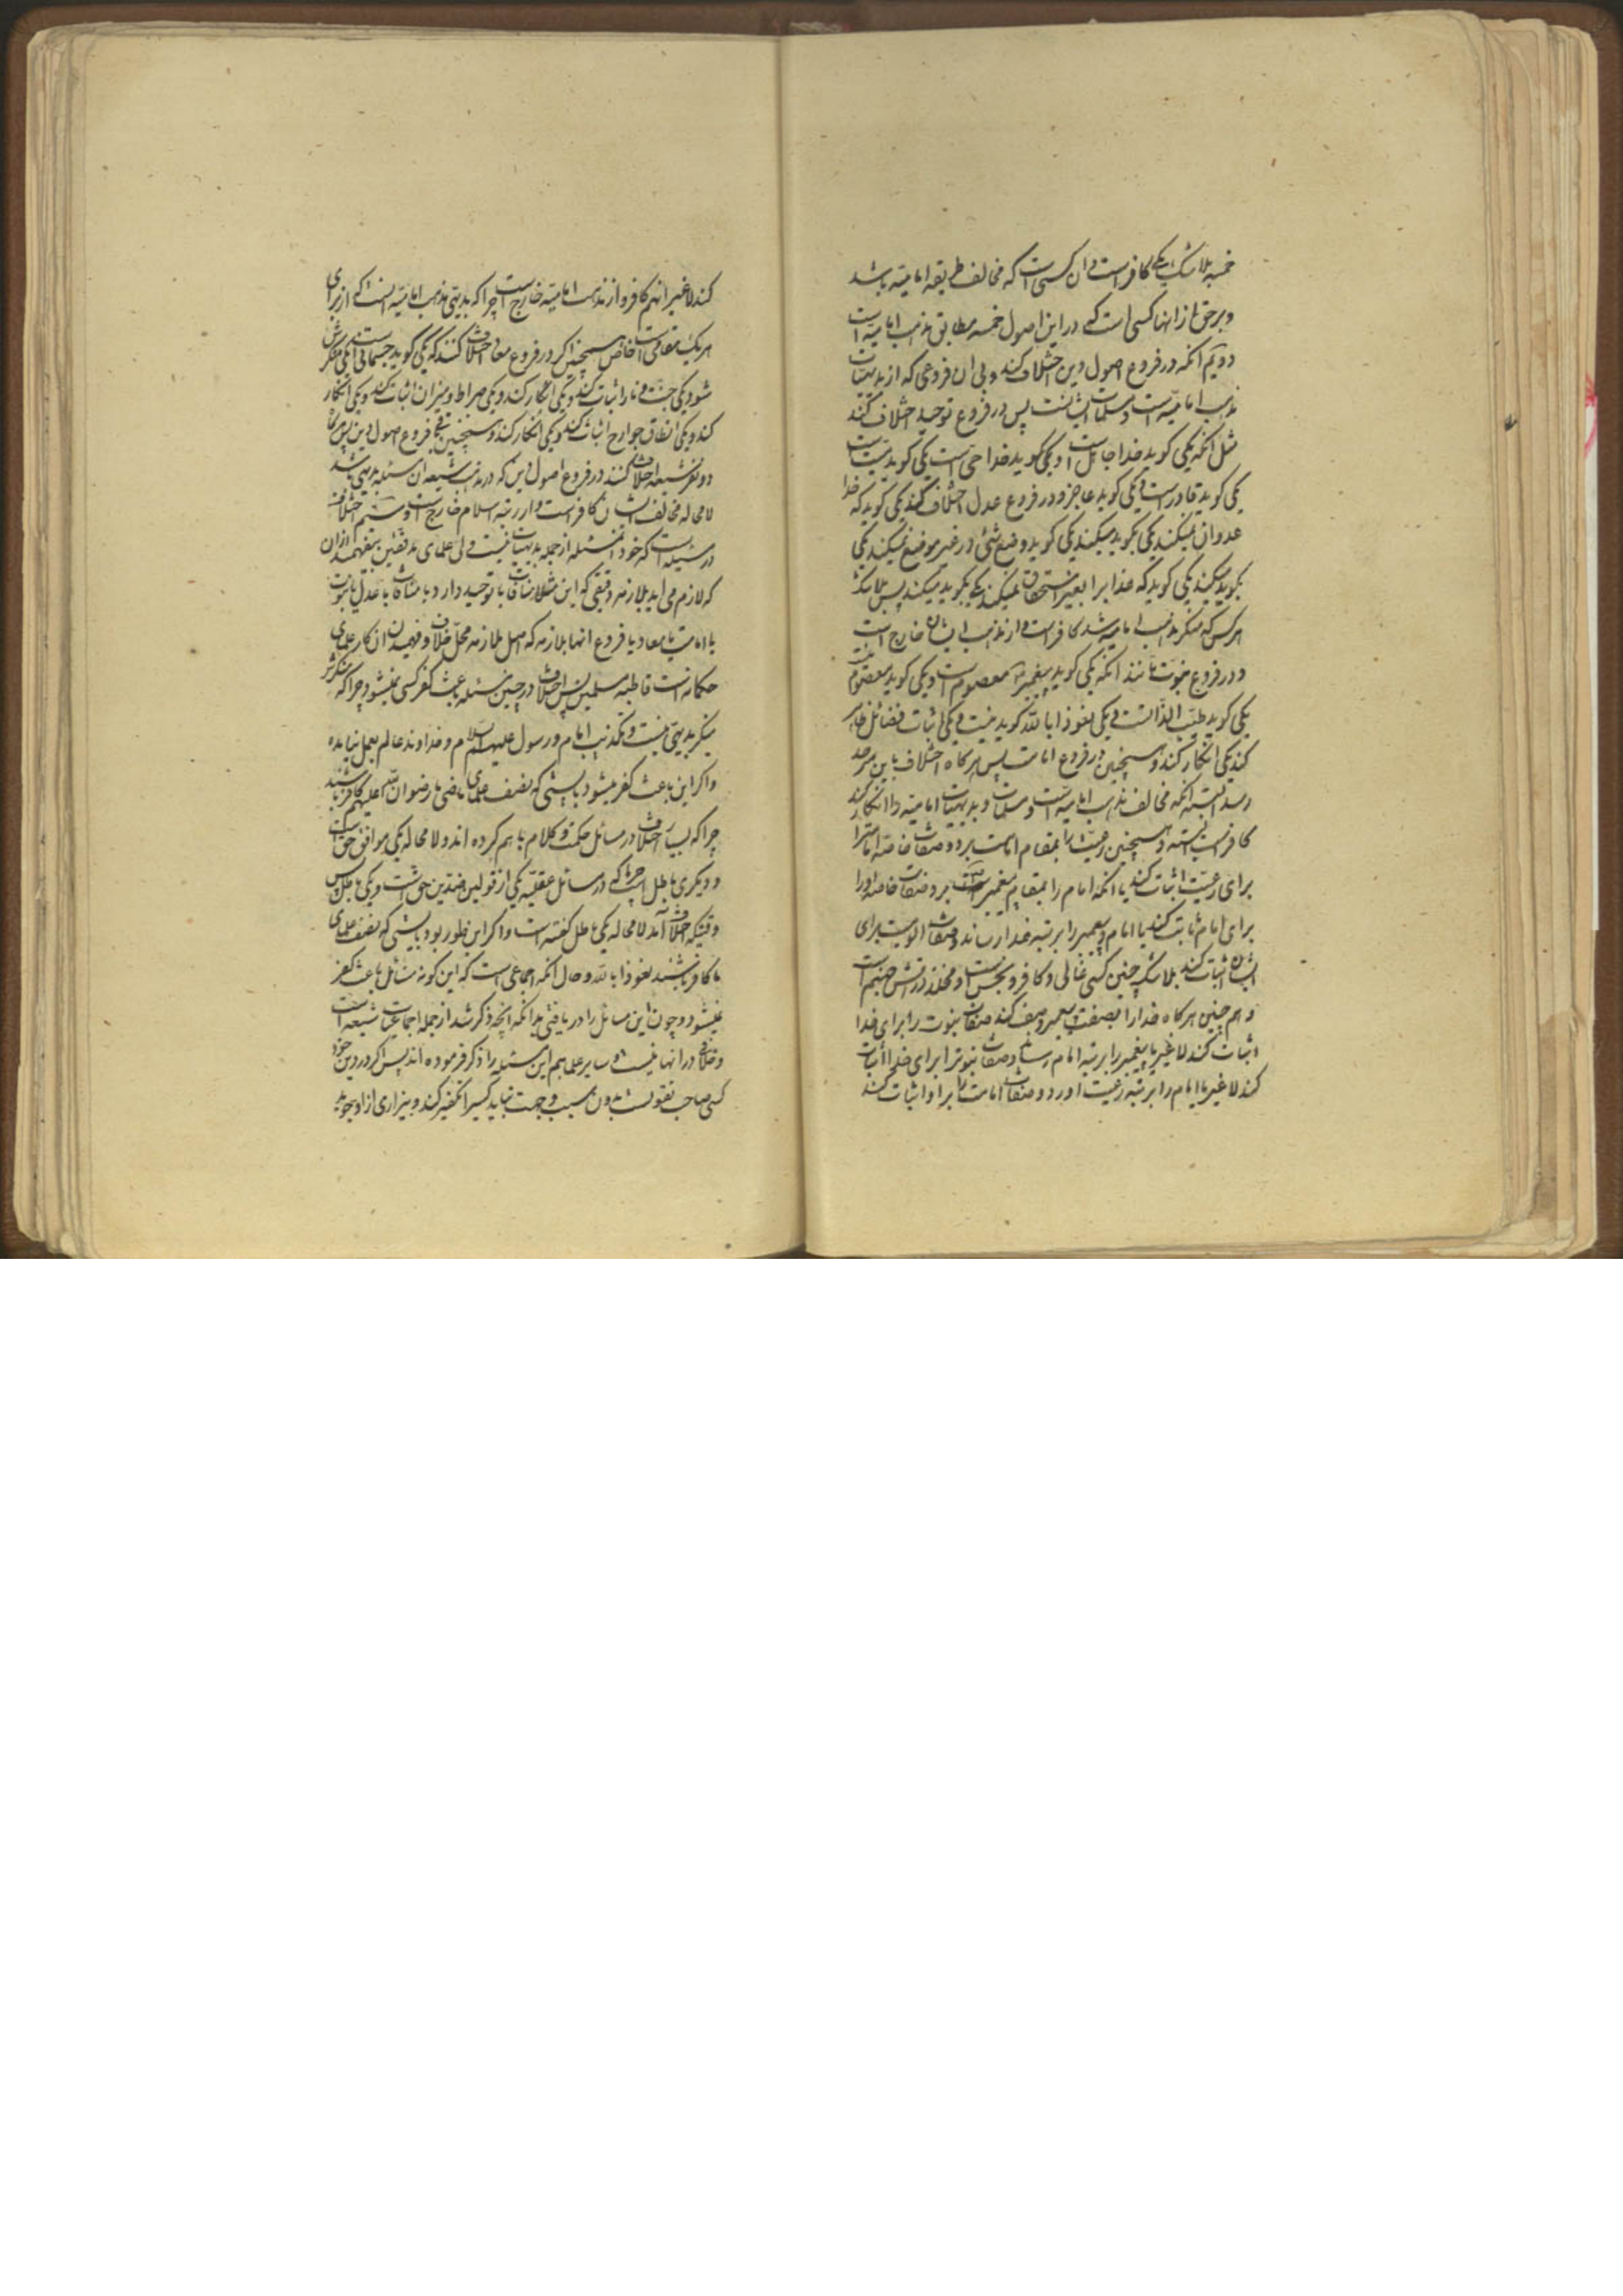 خمسه بلاشک یکی کافر است و ان کسی است که مخالف طریقه امامیّه باشد
و برحق از انها کسی است که در این اصول خمسه مطابق مذهب امامیه است
دویم آنکه در فروع اصول دین اختلاف کنند ولی ان فروعی که از بدیهیات
مذهب امامیّه است و مسلمات ایشانست پس در فروع توحید اختلاف کنند
مثل آنکه یکی کوید خدا جاهل است و یکی کوید خدا حی است یکی کوید نیست
یکی کوید قادر است و یکی کوید عاجز و در فروع عدل اختلاف کنند یکی کوید که خدا
عدوان نمیکند یکی بکوید میکند یکی کوید وضع شئ در غیر موضع نمیکند یکی
بکوید میکند یکی کوید که خدا برا بغیر استحقاق نمیکند یکی بکوید میکند پس بلاشک
هر کس که منکر مذهب امامیه شد کافر است و از مذهب ایشان خارج است
و در فروع نبوت مانند آنکه یکی کوید پیغمبر معصوم است و یکی کوید معصوم نیست
یکی کوید طیّب الذات است و یکی نعوذ بالله کوید نیست و یکی اثبات فضائل ظاهر
کند یکی انکار کند و همچنین در فروع امامت پس هرکاه اختلاف باین سرحد
رسد البته آنکه مخالف مذهب امامیّه است و مسلمات و بدیهیات امامیّه را انکار کند
کافر است البته و همچنین رعیّت را بمقام امامت برد و صفات خاصّه امامت را
برای رعیّت اثبات کند یا آنکه امام را بمقام پیغمبر برد و صفات خاصه او را
برای امام ثابت کند یا امام و پیغمبر را برتبه خدا رساند و صفات الوهیت برای
ایشان اثبات کند بلاشک چنین کسی غالی و کافر و نجس است و مخلد در آتش جهنم است
و هم چنین هرکاه خدا را بصفت پیغمبر وصف کند صفات نبوت را برای خدا
اثبات کند لاغیر یا پیغمبر را برتبه امام رساند و صفات نبوت را برای خدا اثبات
کند لاغیر یا امام را برتبه رعیت اورد و صفات امامت را برا او اثبات کند
کند لاغیر انهم کافر و از مذهب امامیّه خارج است چرا که بدیهی مذهب امامیّه اینست که از برای
هر یک مقامی است خاص همچنین اکر در فروع معاد اختلاف کنند که یکی کوید جسمانی است یکی منکرش
شود یکی جنت و نار اثبات کند و یکی انکار کند و یکی صراط و میزان اثبات کند و یکی انکار
کند و یکی انطاق جوارح اثبات کند و یکی انکار کند و همچنین فروع اصول دین پس هرگاه
دو نفر شیعه اختلاف کنند در فروع اصول دین که در مذهب شیعه ان مسئله بدیهی باشد
لامحاله مخالف ایشان کافر است و از رتبه اسلام خارج است و سیّم اختلاف
در مسئله ایست که خود ان مسئله از جمله بدیهیات نیست ولی علمای مدققین میفهمند از ان
که لازم می اید بلازمه دقیقی که این مثلا منافات با توحید دارد یا منافات با عدل یا نبوت
یا امامت یا معاد یا فروع انها بلازمه که اصل ملازمه محل خلاف و فهمیدن ان کار علمای
حکما است قاطبه مسلمین پس اختلاف در چنین مسئله باعث کفر کسی نمیشود چرا که منکرش
منکر بدیهی نیست و تکذیب امام و رسول علیهم السّلام و خداوند عالم بعمل نیامده
و اکر این باعث کفر میشود بایستی که نصف علمای ماضی ما رضوان اللّه علیهم کافر باشند
چرا که بسیار اختلاف در مسائل حکمت و کلام با هم کرده اند و لامحاله یکی موافق حق است
و دیکری باطل است چرا که در مسائل عقلیّه یکی از قولین ضدین حق است و یکی باطل پس
وقتیکه اختلاف آمد لامحاله یکی باطل کفته است و اکر این طور بود بایستی که نصف علمای
ما کافر باشند نعوذ بالله و حال آنکه اجماعی است که این کونه مسائل باعث کفر
نمیشود و چون این مسائل را دریافتی بدانکه انچه ذکر شد از جمله اجماعیات شیعه است
و خلافی در انها نیست و سایر علما هم این مسئله را ذکر فرموده اند پس اکر در دین خود
کسی صاحب تقوی است بدون سبب و جهت نباید کسی را تکفیر کند و بیزاری از او بجوید